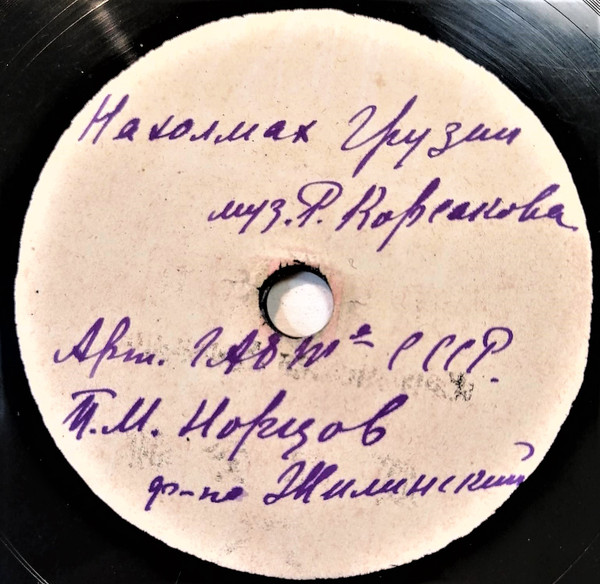 На холмах Грузии
муз. Р. Корсакова
Арт. ГАБТа СССР.
П.М. Норцов
ф-но Жилинский